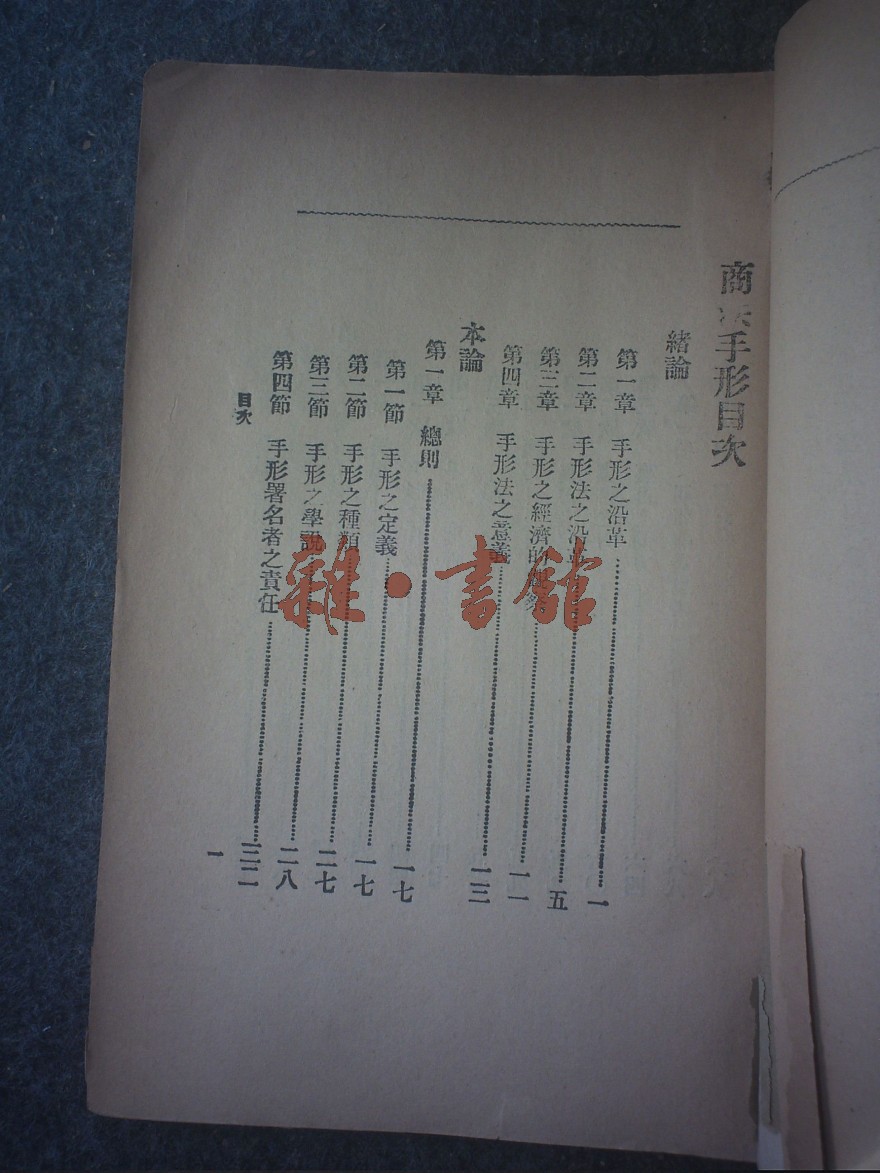 商法手形目次
緒論
第一章 手形之沿革 一
第二章 手形法之沿革 五
第三章 手形之經濟的 一一
第四章 手形法之意義 一三
本論
第一章 總則 一七
第一節 手形之定義 一七
第二節 手形之種類 二七
第三節 手形之學說 二八
第四節 手形署名者之責任 三二
目次 一
雜·書館